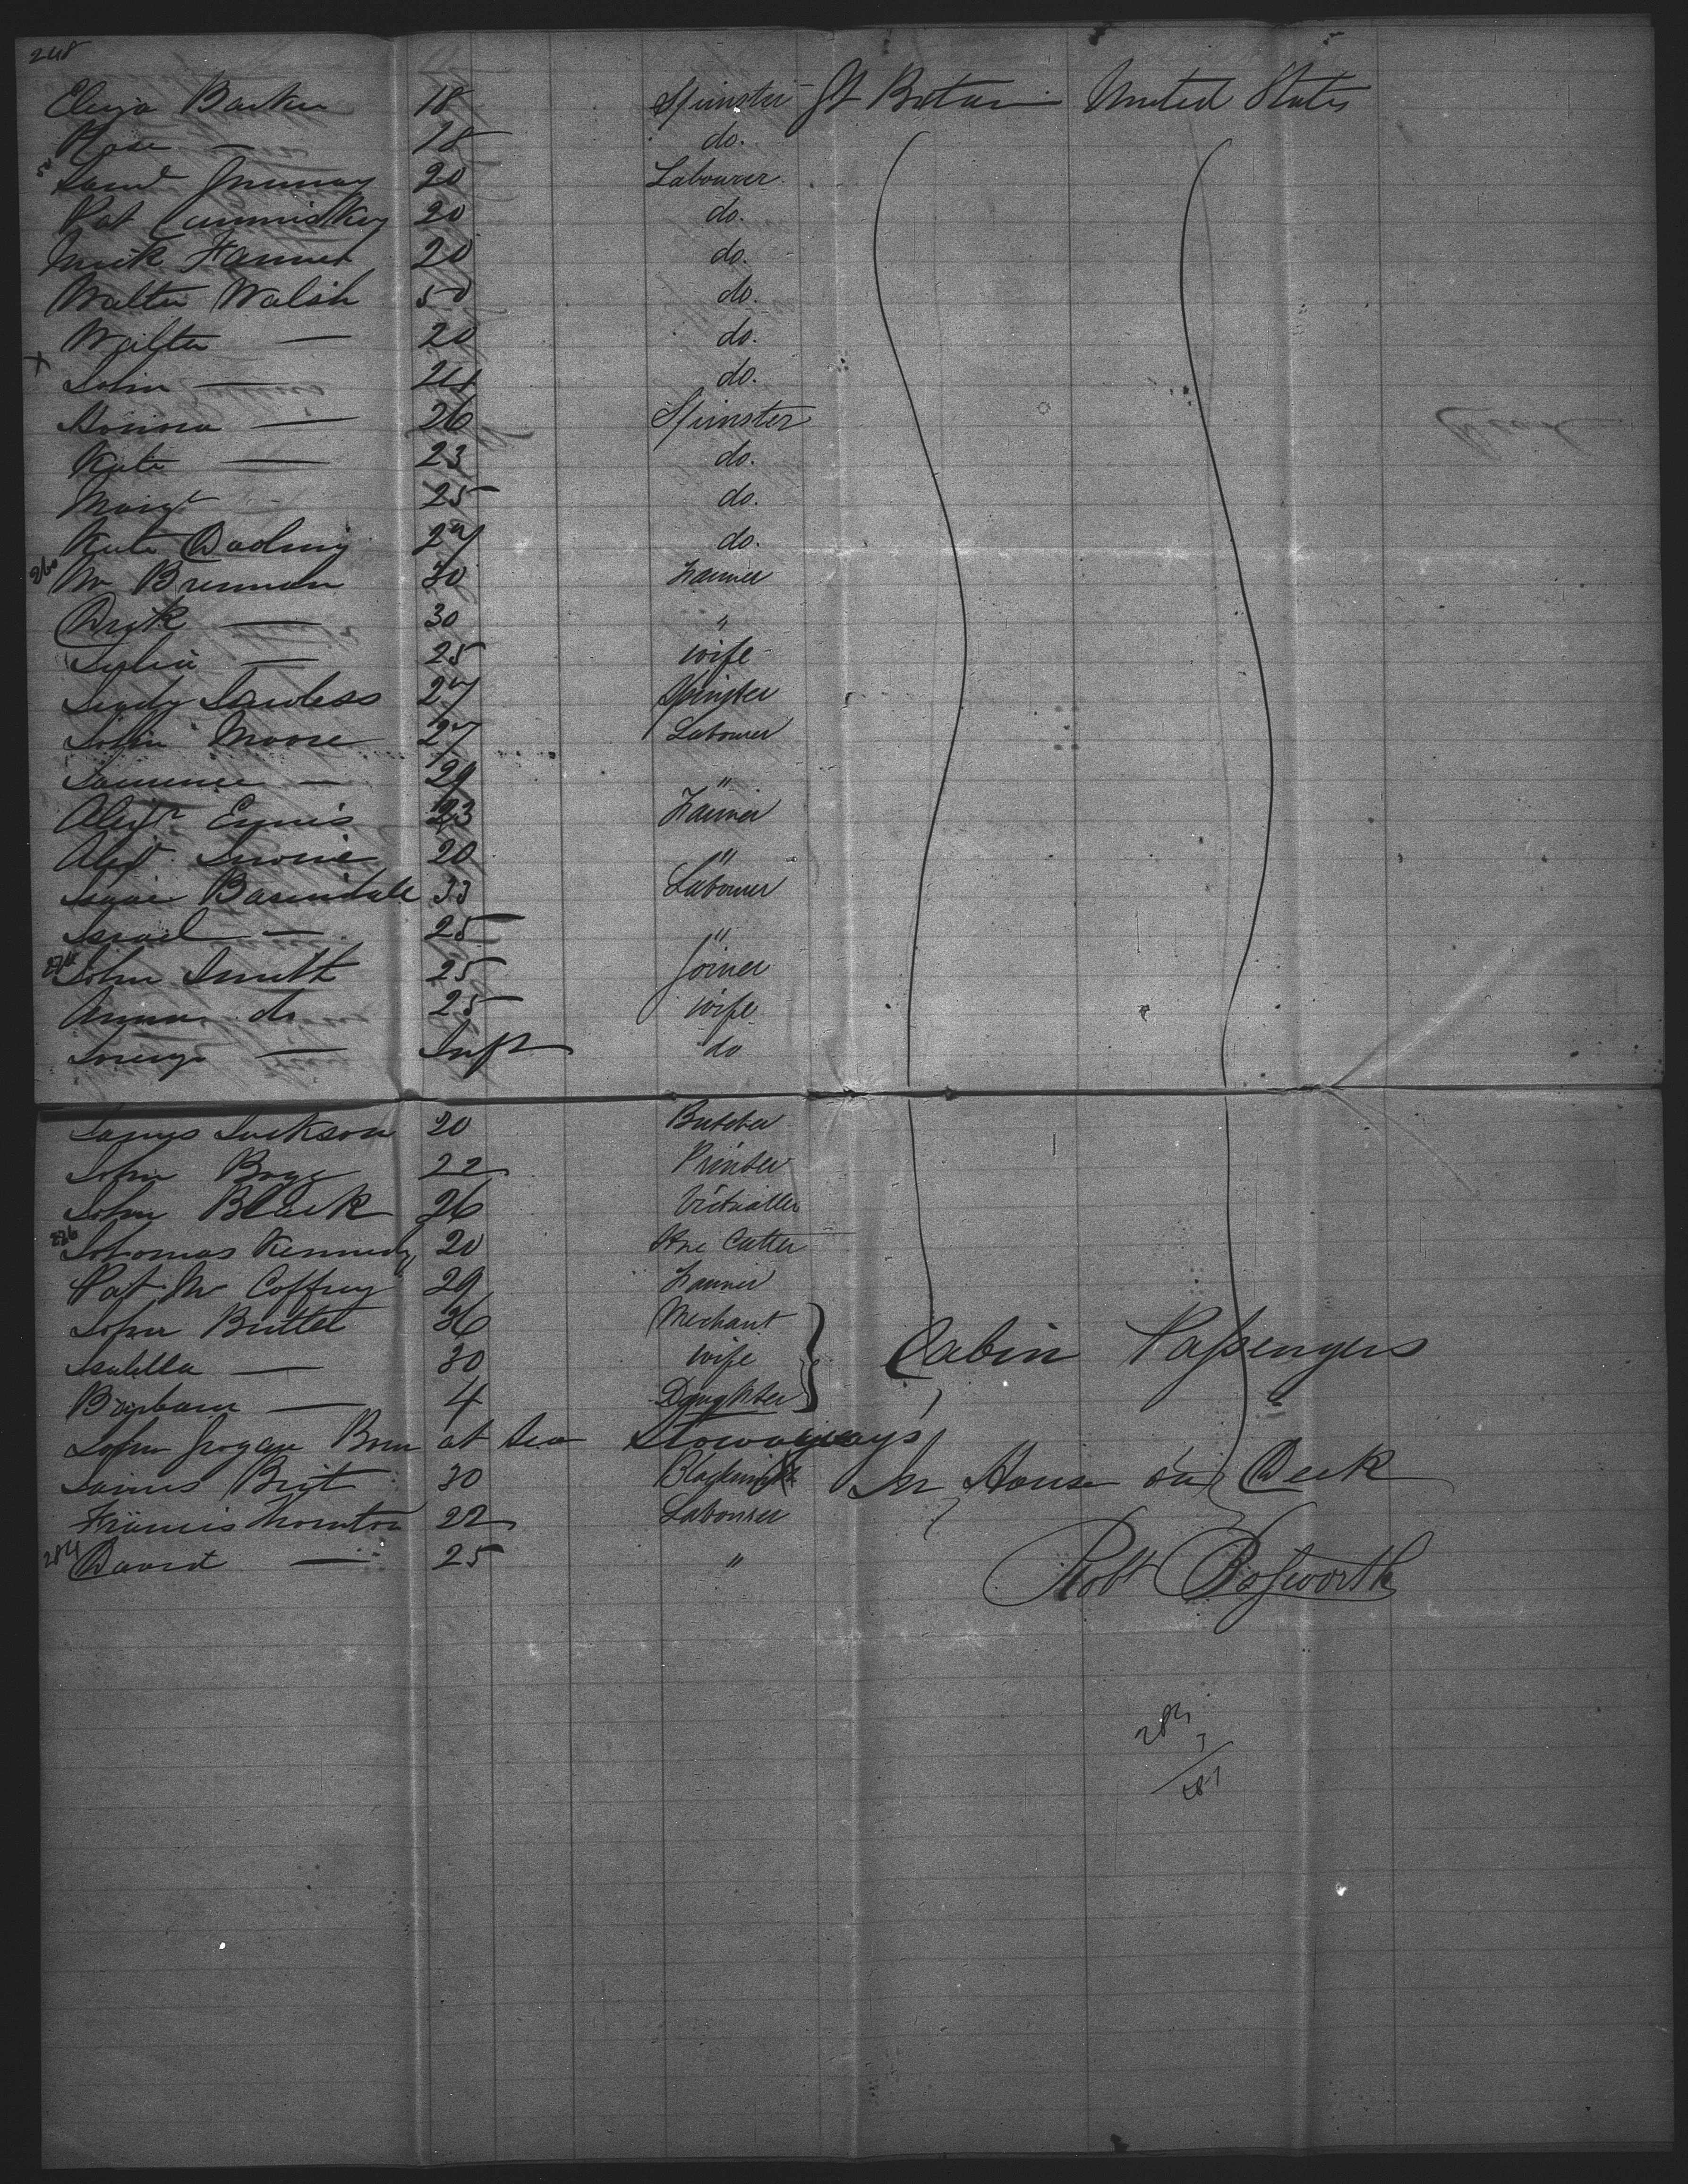 248
Eliza Barker 18 Spinster Gt Britain United States
Rose — 18 do.
Saml 20 Labourer
Pat Cummiskey 20 do.
Mick Farmer 20 do.
Walter Walsh 50 do.
Walter — 20 do.
x John — 24 do.
Honora — 26 Spinster
Kate — 23 do.
Margt 25 do.
Kate Dooling 27 do.
260 Wm Brennan 30 Farmer
Dick — 30 "
Julia — 25 wife
Judy Lawless 27 Spinster
John Moore 27 Labourer
Laurence — 29 "
Alexr Ennis 23 Farmer
Alexr 20 "
Isaac Basendale 33 Labourer
Israel — 25 "
John Smith 25 Joiner
Anna do 25 wife
Lorenzo — Inft do
James Jackson 20 Butcher
John 22 Printer
John Black 26 Victualler
Thomas Kennedy 20 Cutter
Pat Mc Coffrey 29 Farmer
John Butler 36 Merchant
Isabella — 30 wife Cabin Passengers
Barbara — 4 Daughter
John Grogan Born at Sea Stowaways
James Brit 30 Blacksmith In House on Deck
Francis Thornton 22 Labourer
284 David — 25 "
Robt Bosworth